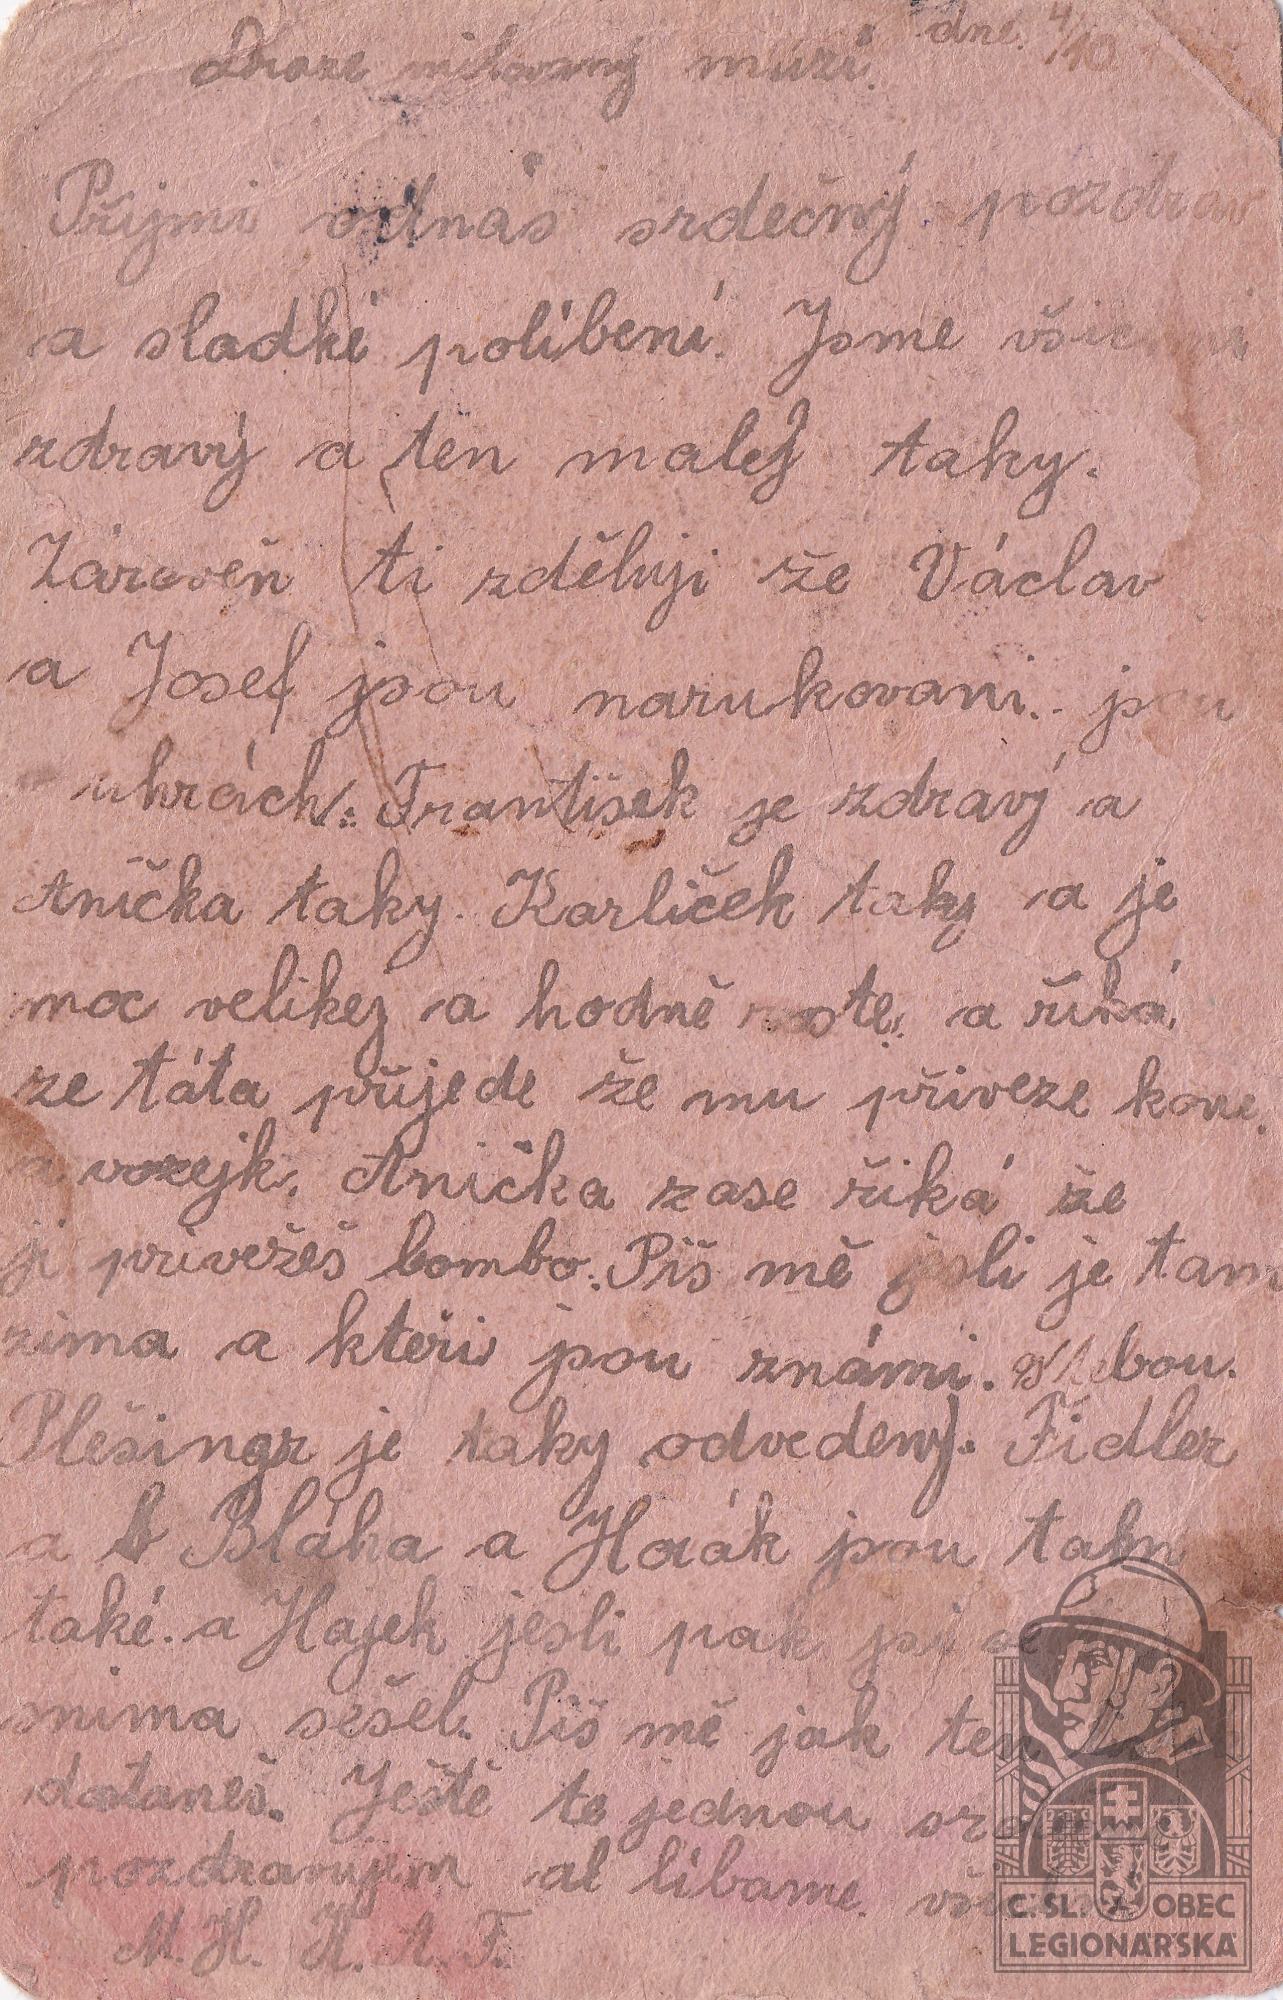 dne. 4/10
Draze milovaný muži.
Přijmi odnás srdečný pozdrav
a sladké políbení. Jsme všicni
zdravý a ten malej taky.
Zároveň ti zděluji že Václav
a Josef jsou narukovani. jsou
uhrách. František je zdravý a
Anička taky. Karliček taky a je
moc velikej a hodně roste. a říká.
ze táta přijede že mu přiveze kone.
a vozejk. Anička zase říká že
ji privežeš bombo. Piš mě jesli je tam
zima a kteři jsou známi. stebou.
Plešingr je taky odvedený. Fidler
a Bláha a Horák jsou tam
také. a Hajek jesli pak jsi se
snima sešel. Piš mě jak ten
dostaneš. Ještě te jednou
pozdravujem at líbame.
M. H. K. A. F.
Č. SL. OBEC
LEGIONÁŘSKÁ